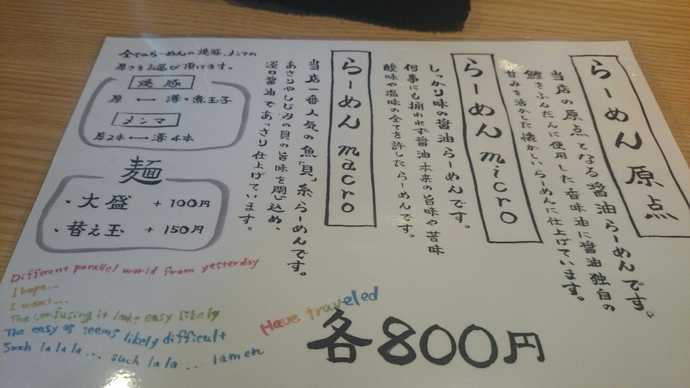 らーめん 原点
当店の原点となる醤油らーめんです。
鰹をふんだんに使用した香味油に醤油独自の
甘みを活かした懐かしいらーめんに仕上げています。
らーめん micro
しっかり味の醤油らーめんです。
何事にも捕われず醤油本来の旨味や苦味
酸味や塩味の全てを許したらーめんです。
らーめん macro
当店一番人気の魚「貝」系らーめんです。
あさりやしじみの貝の旨味を閉じ込め、
淡口醤油であっさり仕上げています。
全てのらーめんの焼豚、メンマの
厚さをお選び頂けます。
焼豚
厚 ⟷ 薄+煮玉子
メンマ
厚2本 ⟷ 薄4本
麺
・大盛 +100円
・替え玉 +150円
Different parallel world from yesterday
I hope...
I want...
The confusing it looks easy likely
The easy it seems likely difficult
Such la la la... such la la... lamen
Have traveled
各800円